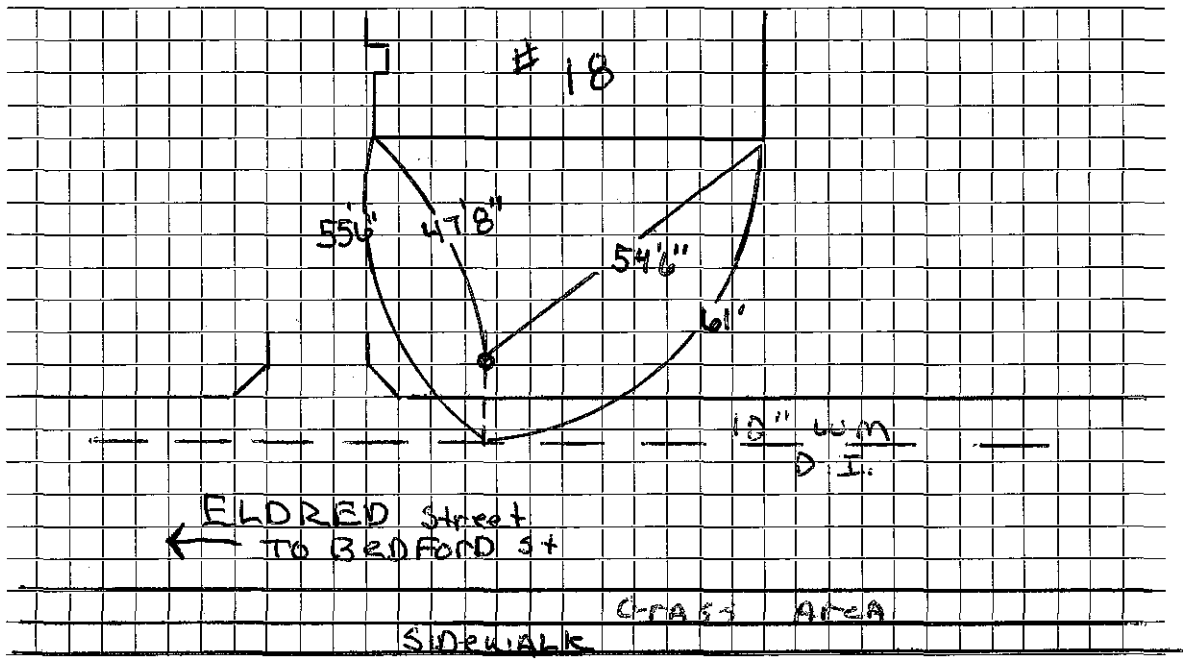 # 18
55'6"
47'8"
54'6"
61'
10" WM
D.I.
ELDRED Street
← TO BEDFORD St
GrAss AreA
SIDewALK